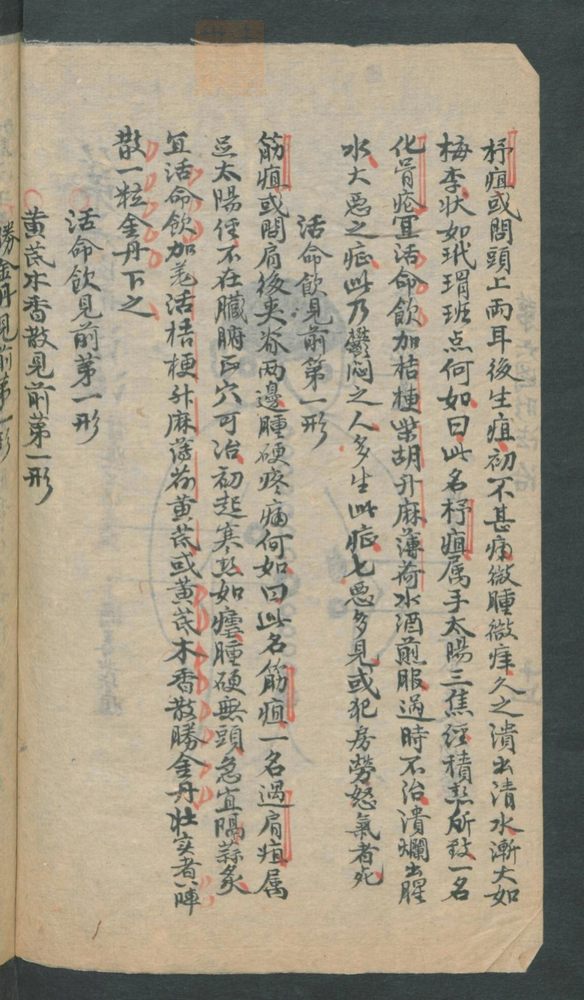 杼疽或問頭上兩耳後生疽初不甚痛微腫微痒久之潰出清水漸大如
梅李状如玳瑁班点何如曰此名杼疽属手太陽三焦経積热所致一名
化骨疮宜活命飲加桔梗柴胡升麻薄荷水酒煎服过時不治潰爛出腥
水大惡之症此乃鬱悶之人多生此症七惡多見或犯房勞怒氣者死
活命飲見前第一形
筋疽或問肩後夹脊兩邊腫硬疼痛何如曰此名筋疽一名過肩疽属
足太陽経不在臟腑正穴可治初起寒热如瘧腫硬無頭急宜隔蒜炙
宜活命飲加羌活桔梗升麻薄荷黄芪或黄芪木香散勝金丹壮实者一陣
散一粒金丹下之
活命飲見前第一形
黄芪木香散見前第一形
勝金丹見前第一形